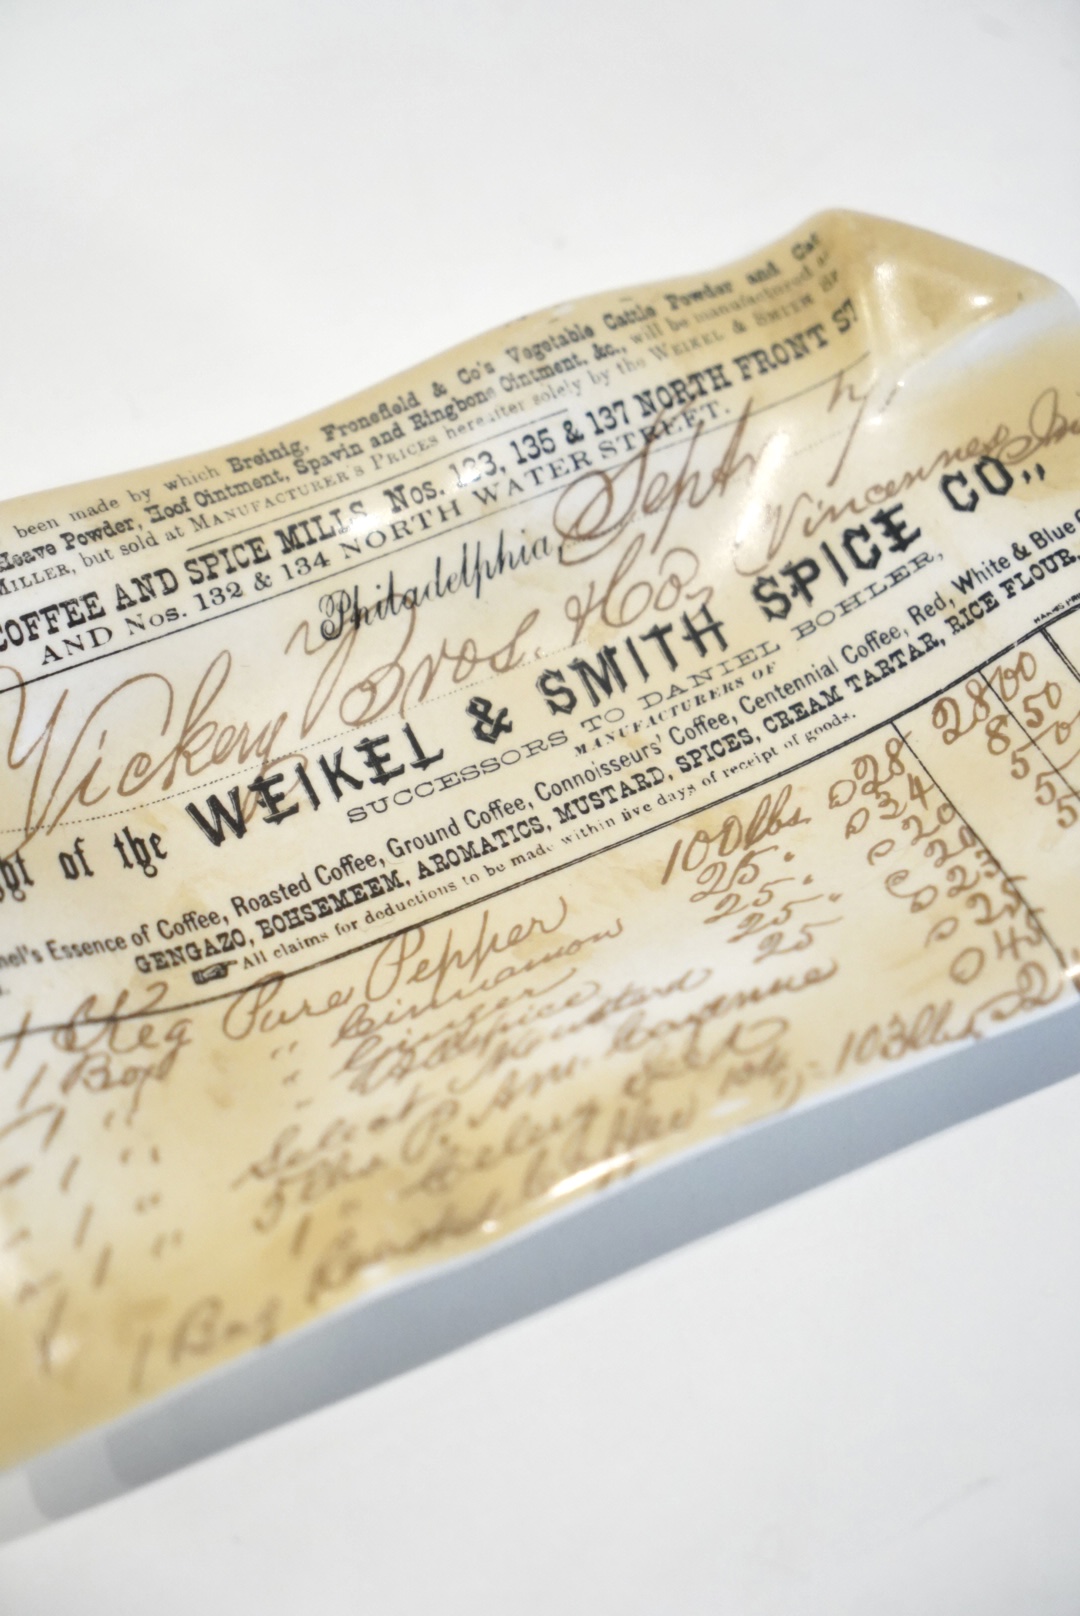 been made by which Breinig, Fronefield & Co's Vegetable Cattle Powder and
Heave Powder, Hoof Ointment, Spavin and Ringbone Ointment, &c., will be manufactured
MILLER, but sold at MANUFACTURER'S PRICES hereafter solely by the WEIKEL & SMITH
COFFEE AND SPICE MILLS, Nos. 133, 135 & 137 NORTH FRONT ST
AND Nos. 132 & 134 NORTH WATER STREET.
Philadelphia, Sept
Vickery Bros. & Co, Vincennes
of the WEIKEL & SMITH SPICE CO.,
SUCCESSORS TO DANIEL BOHLER,
MANUFACTURERS OF
Essence of Coffee, Roasted Coffee, Ground Coffee, Connoisseurs' Coffee, Centennial Coffee, Red, White & Blue
GENGAZO, BOHSEMEEM, AROMATICS, MUSTARD, SPICES, CREAM TARTAR, RICE FLOUR,
All claims for deductions to be made within five days of receipt of goods.
1 Keg Pure Pepper 100 lbs 28 28 00
1 Box " Cinnamon 25 " 34 8 50
" 1 " " Ginger 25 " 20 5
" 1 " " Allspice 25 " 20 5
" 1 " Select Mustard 25 23 5
" 1 " 5 lbs P. Am. Cayenne
1 " Celery Seed
1 Bag Roasted Coffee 104 - 1 - 103 lbs